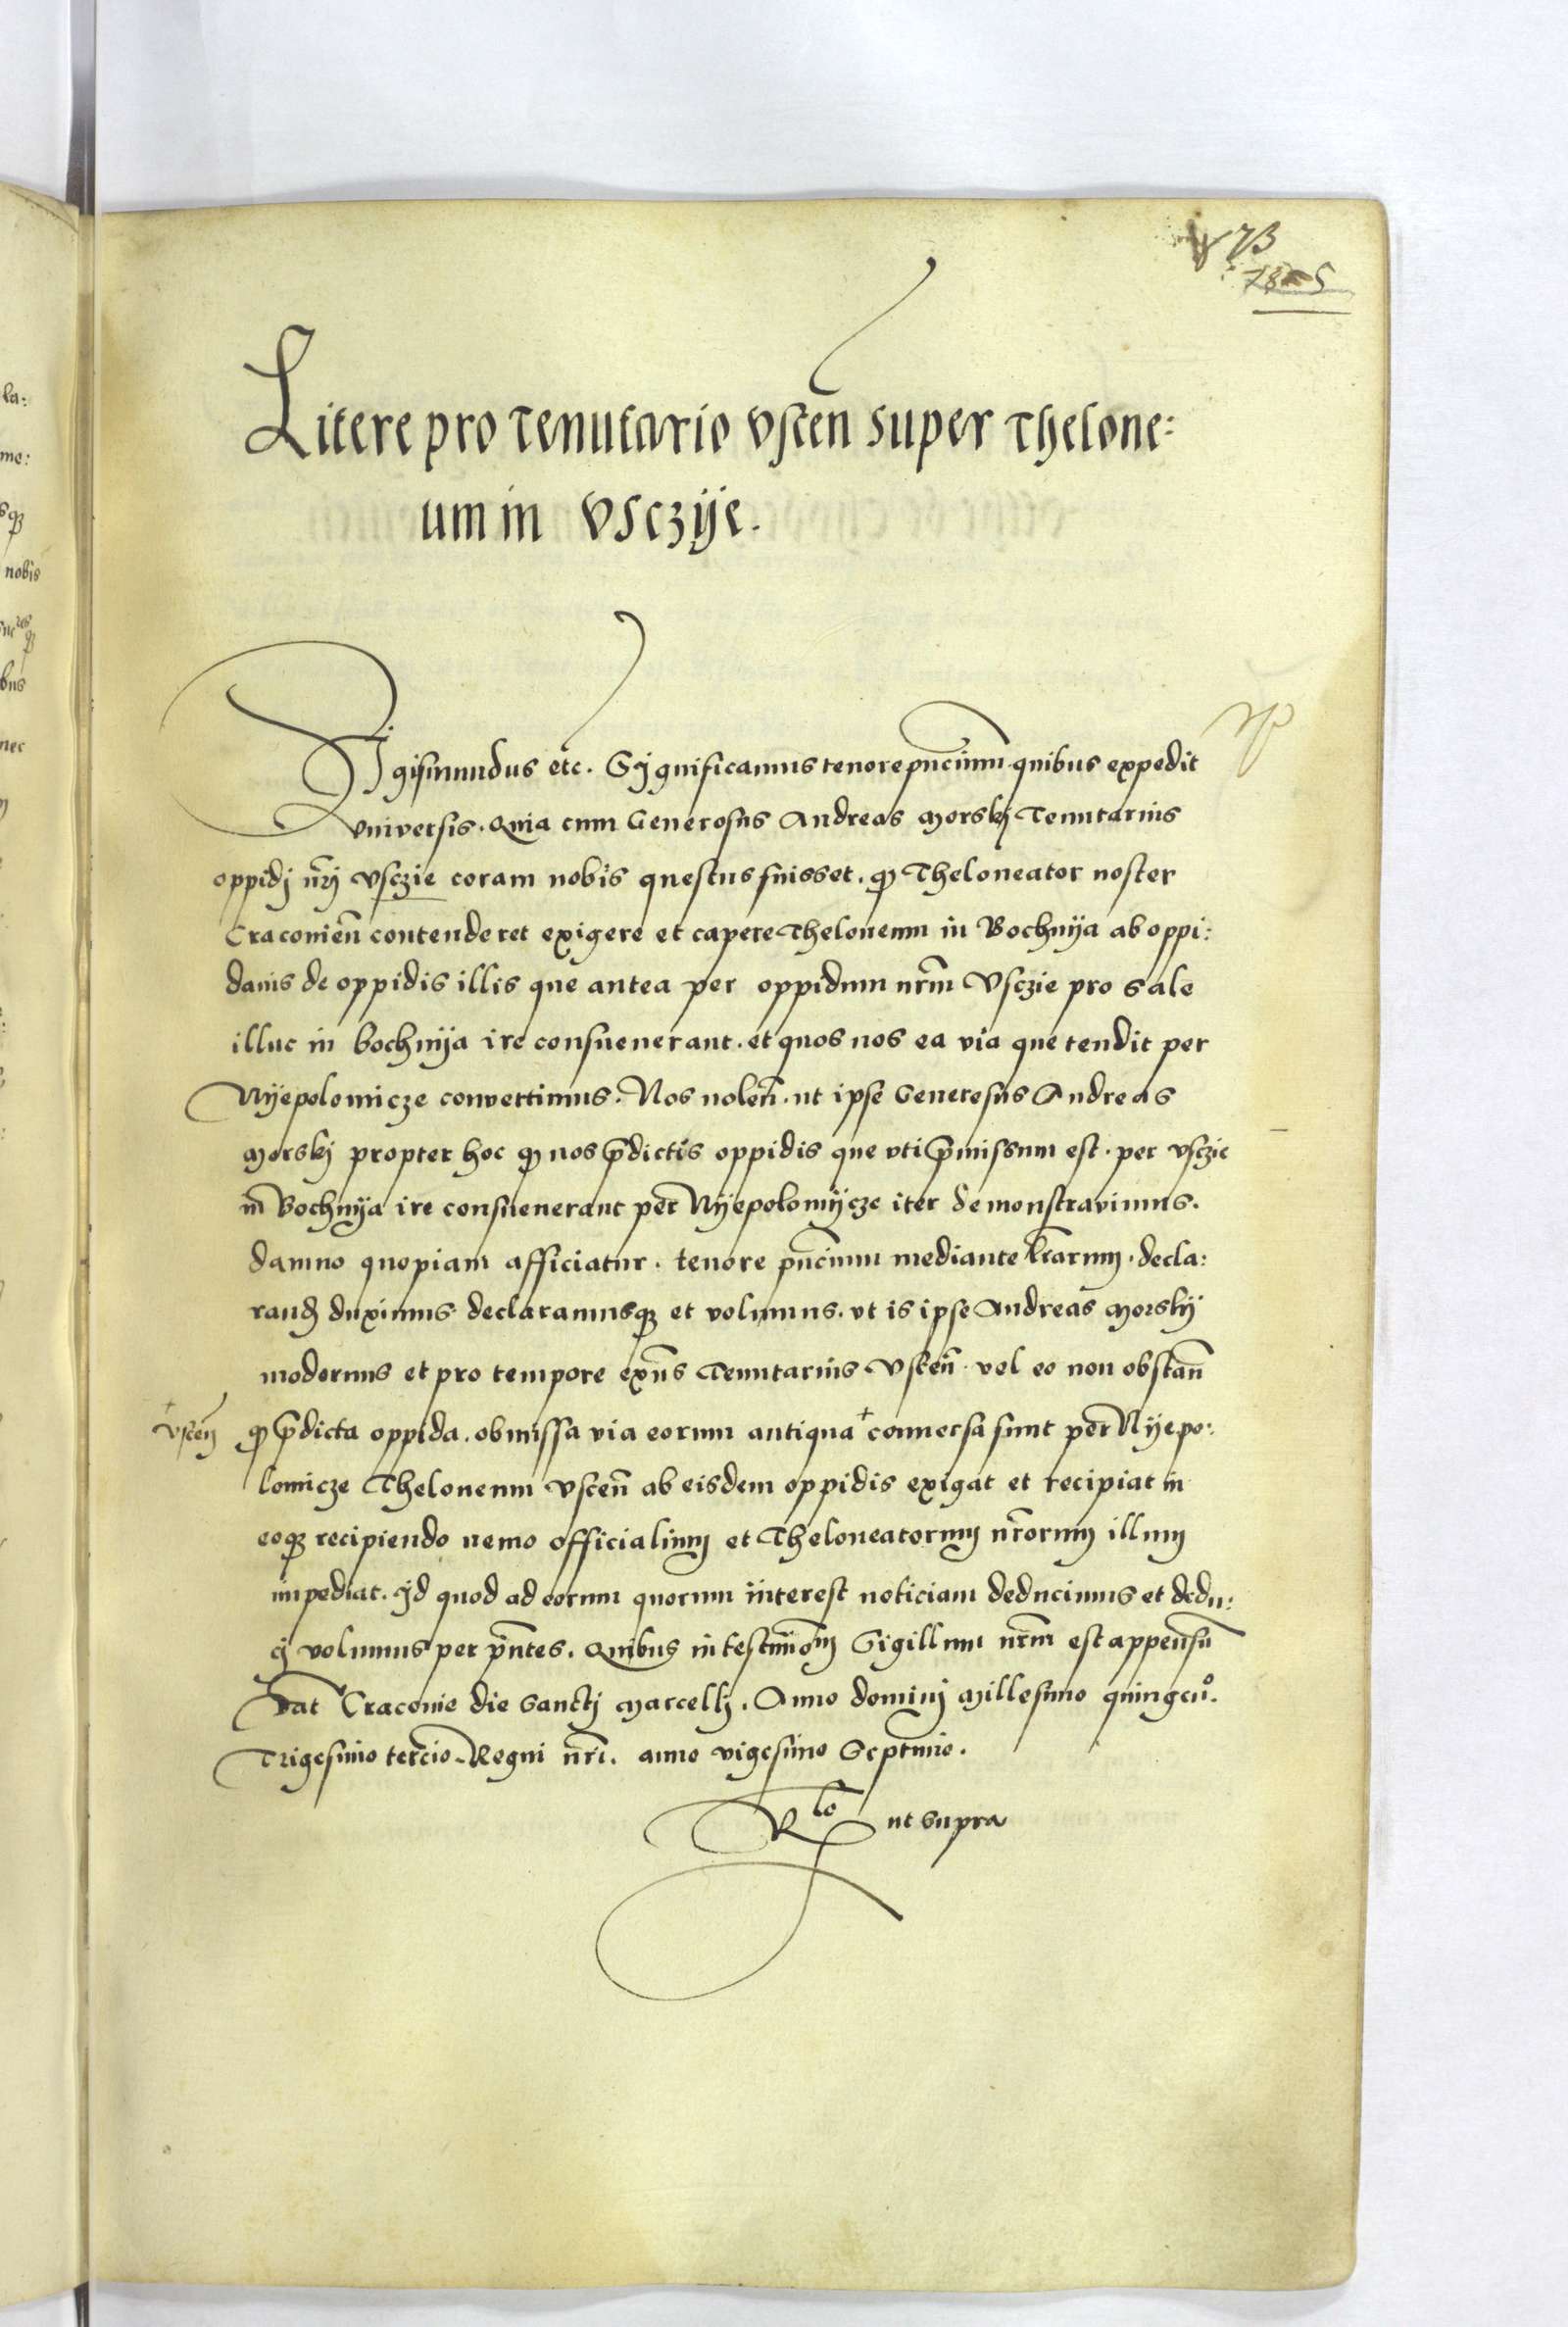 73
Litere pro Tenutario vscen̄ super Thelone:
um in Vsczÿe.
Sigismundus etc. Significamus tenore pn̄cium quibus expedit
vniversis. Quia cum Generosus Andreas Morskj Tenutarius
oppidj nr̄j vsczie coram nobis questus fuisset. ꝙ Theloneator noster
Cracovien̄ contenderet exigere et capere Theloneum in Bochnÿa ab oppi:
danis de oppidis illis que antea per oppidum nr̄m Vsczie pro sale
illuc in bochnÿa ire consueuerant. et quos nos ea via que tendit per
Nÿepolomicze convertimus. Nos nolen̄. ut ipse Generosus Andreas
Morskj propter hoc ꝙ nos p̄dictis oppidis que vti p̄missum est. per vsczie
in Bochnÿa ire consueuerant per Nÿepolomÿcze iter demonstravimus.
damno quopiam afficiatur. tenore pn̄cium mediante lr̄arum. decla:
rand̄ duximus declaramusqꝫ et volumus. vt is ipse Andreas Morskÿ
modernus et pro tempore exn̄s Tenutarius Vscen̄. vel eo non obstan̄
+ vscen̄
ꝙ p̄dicta oppida. obmissa via eorum antiqua + conuersa sunt per Nÿepo:
lomicze Theloneum vscen̄ ab eisdem oppidis exigat et recipiat in
eoqꝫ recipiendo nemo officialium et Theloneatorum nr̄orum illum
impediat. Id quod ad eorum quorum interest noticiam deducimus et dedu:
cj volumus per pn̄tes. Quibus in testimōm Sigillum nr̄m est appensū
Dat Cracovie die Sanctj Marcellj. Anno dominj Millesimo quingcᵒ.
Trigesimo tercio. Regni nr̄i. anno vigesimo Septimo.
Rlō ut supra